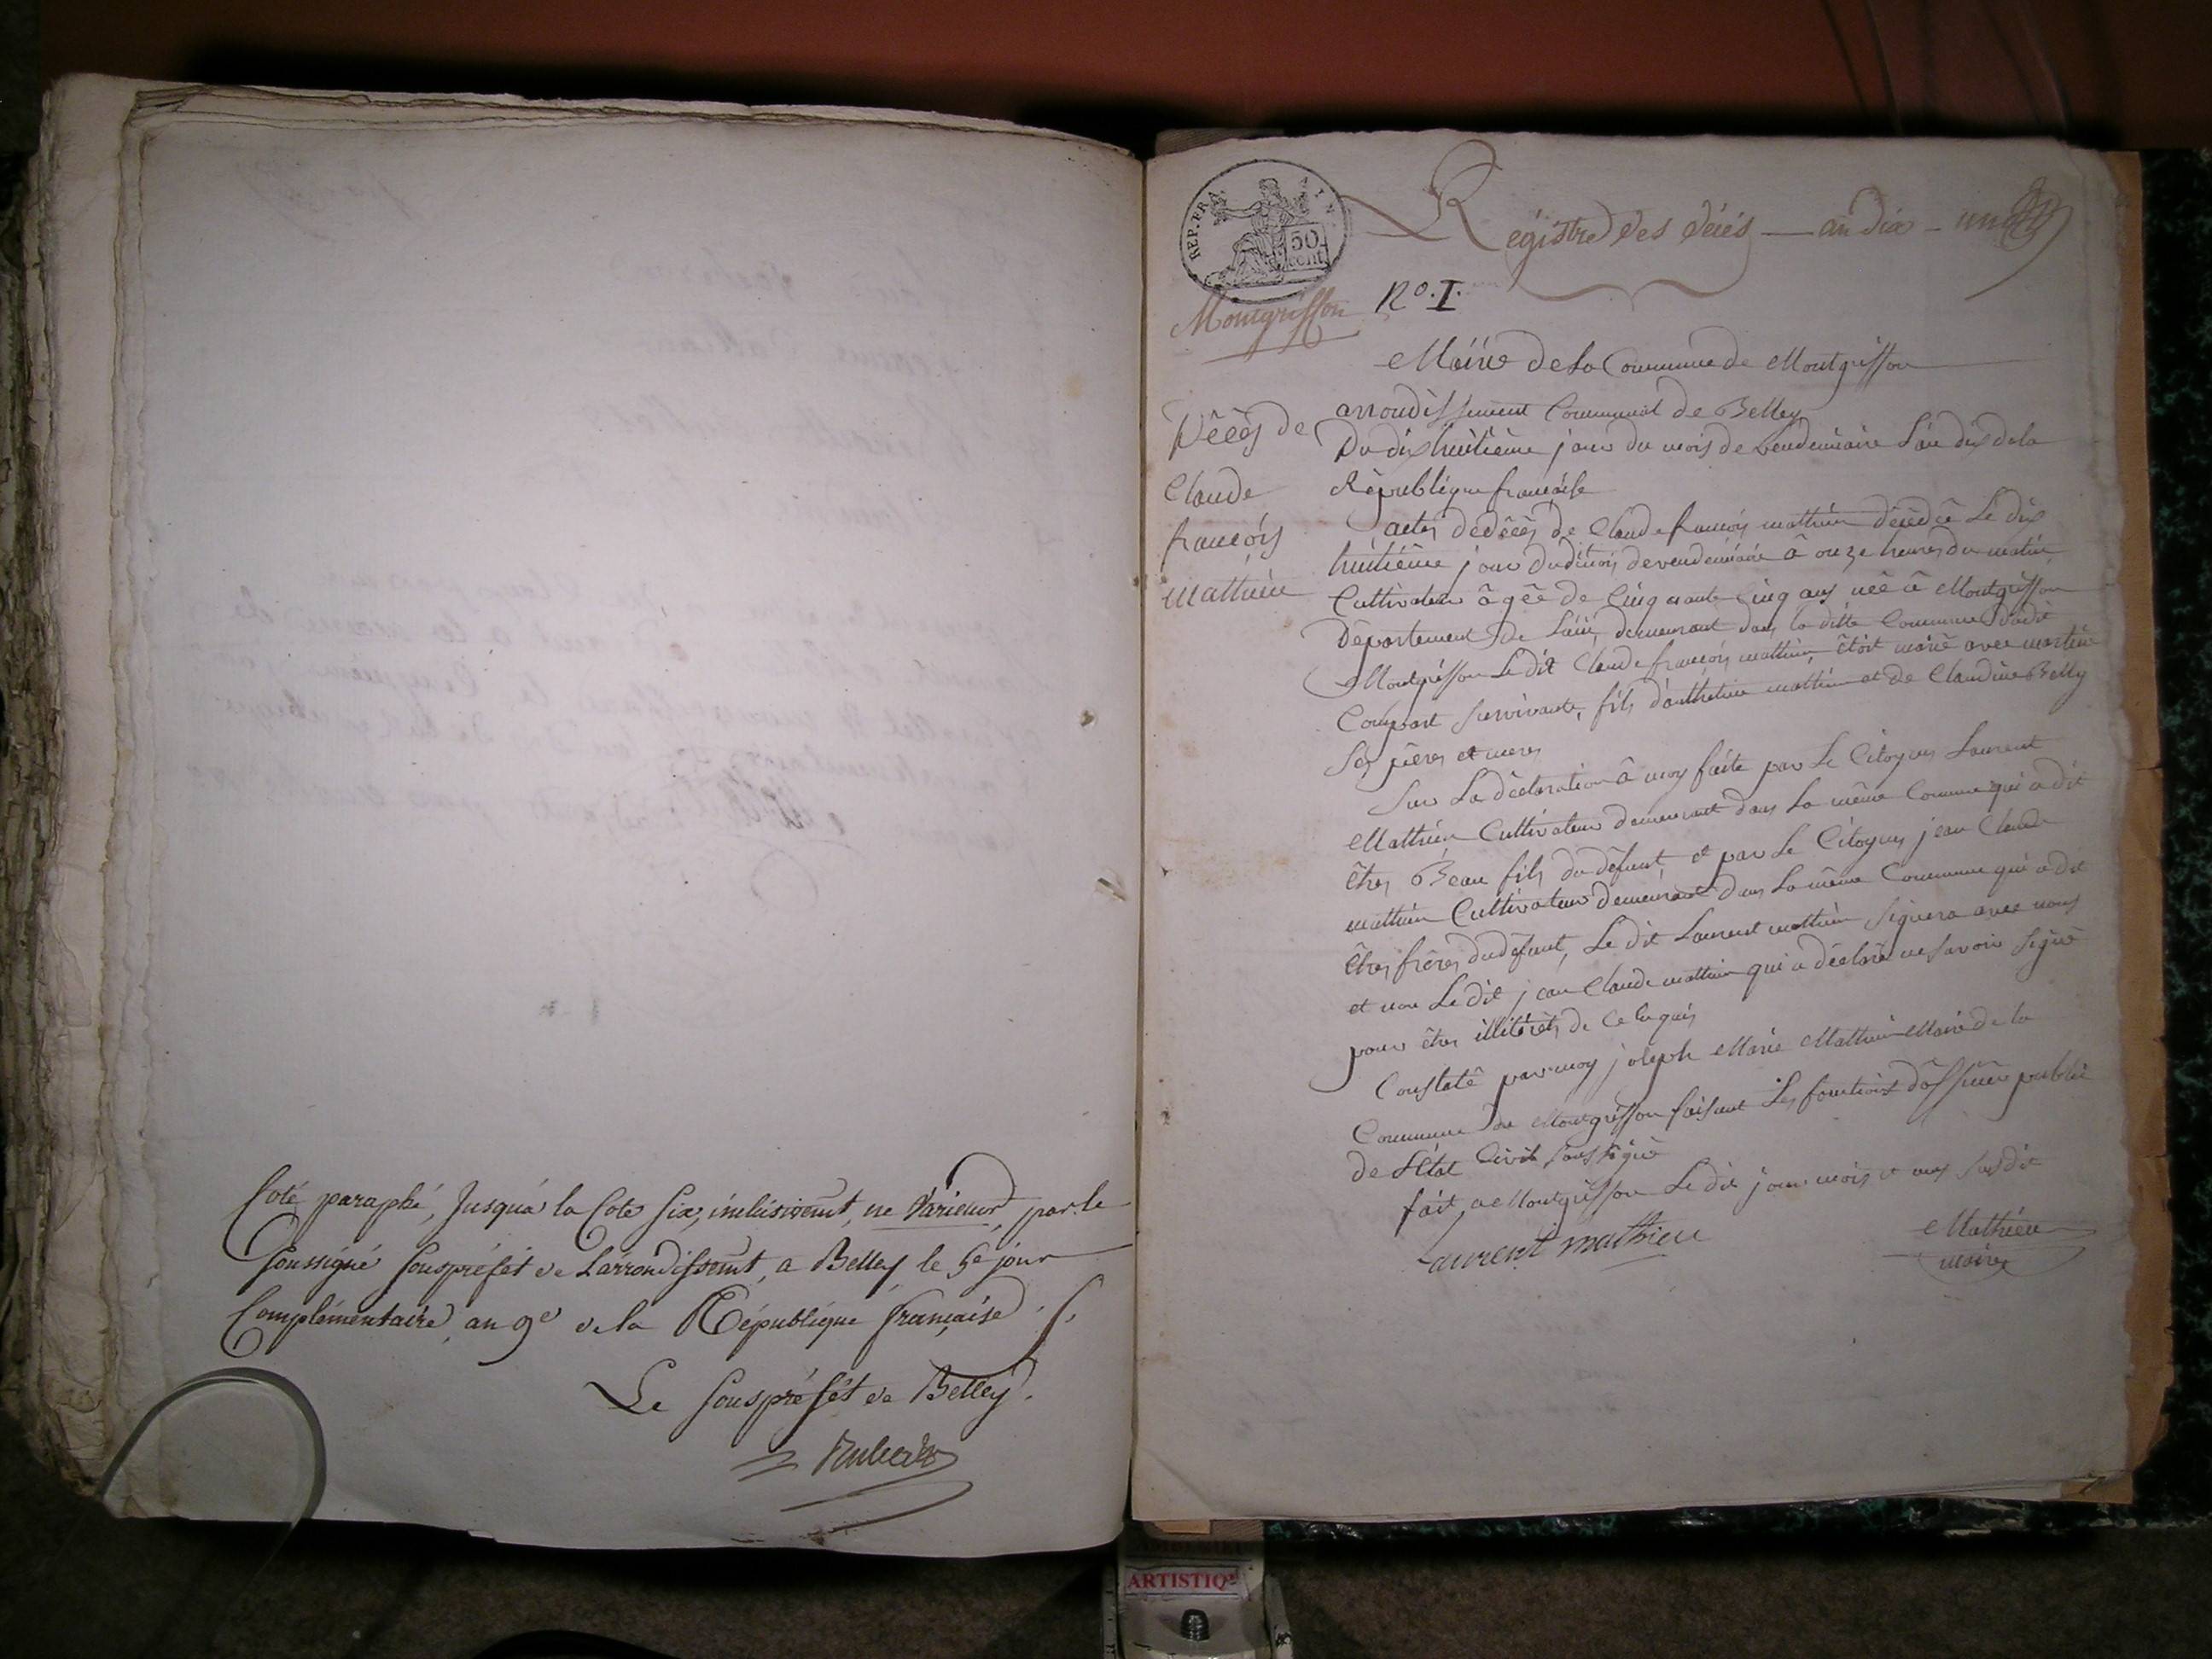 Coté paraphé, Jusqu'à la Cote six, inclusivemt, ne Varietur, par le
Soussigné Souspréfét de L'arrondissemt, a Belley, le 5e jour
Complémentaire, an 9e de la République française.
Le Souspréfét de Belley.
REP. FRA.
50
cent
Régistre des décés — an dix — un
Montgriffon
No. I.
Mairie de la Commune de Montgriffon
arrondissement Communal de Belley
Dêcês de
Claude
françois
mathieu
Du dix huitième jour du mois de vendemiaire L'an dix de la
République françaisse
actes de dêcês de Claude françois mathieu dêcêdê Le dix
huitiême jour dudit mois de vendemiaire â onze heures du matin
Cultivateur âgêe de Cinquante Cinq ans nêe â Montgriffon
Dêpartement de L'ain, demeurant dans la ditte Commune dudit
Montgriffon Le dit Claude françois mathieu êtoit mariê avec
Survivante, fils d'anthelme mathieu et de Claudine Belly
Ses pêres et meres
Sur La dêclaration â moy faite par Le Citoyen Laurent
Mathieu Cultivateur demeurant dans La même Commune qui a dit
êtres Beau fils du dêfunt, et par Le Citoyen jean Claude
mathieu Cultivateur demeurant dans La même Commune qui a dit
êtres frêres du dêfunt, Le dit Laurent mathieu signera avec nous
et non Le dit jean Claude mathieu qui a dêclarê ne savoir signê
pour êtres illitêrês de Ce Enquis
Constatê par moy joseph Marie Mathieu Maire de la
Commune de Montgriffon faisant Les fonctions d'officier public
de L'Etat Civil soussignê
fait a Montgriffon Le dit jour mois et ans susdit
Laurent mathieu
Mathieu
maire
ARTISTIQ